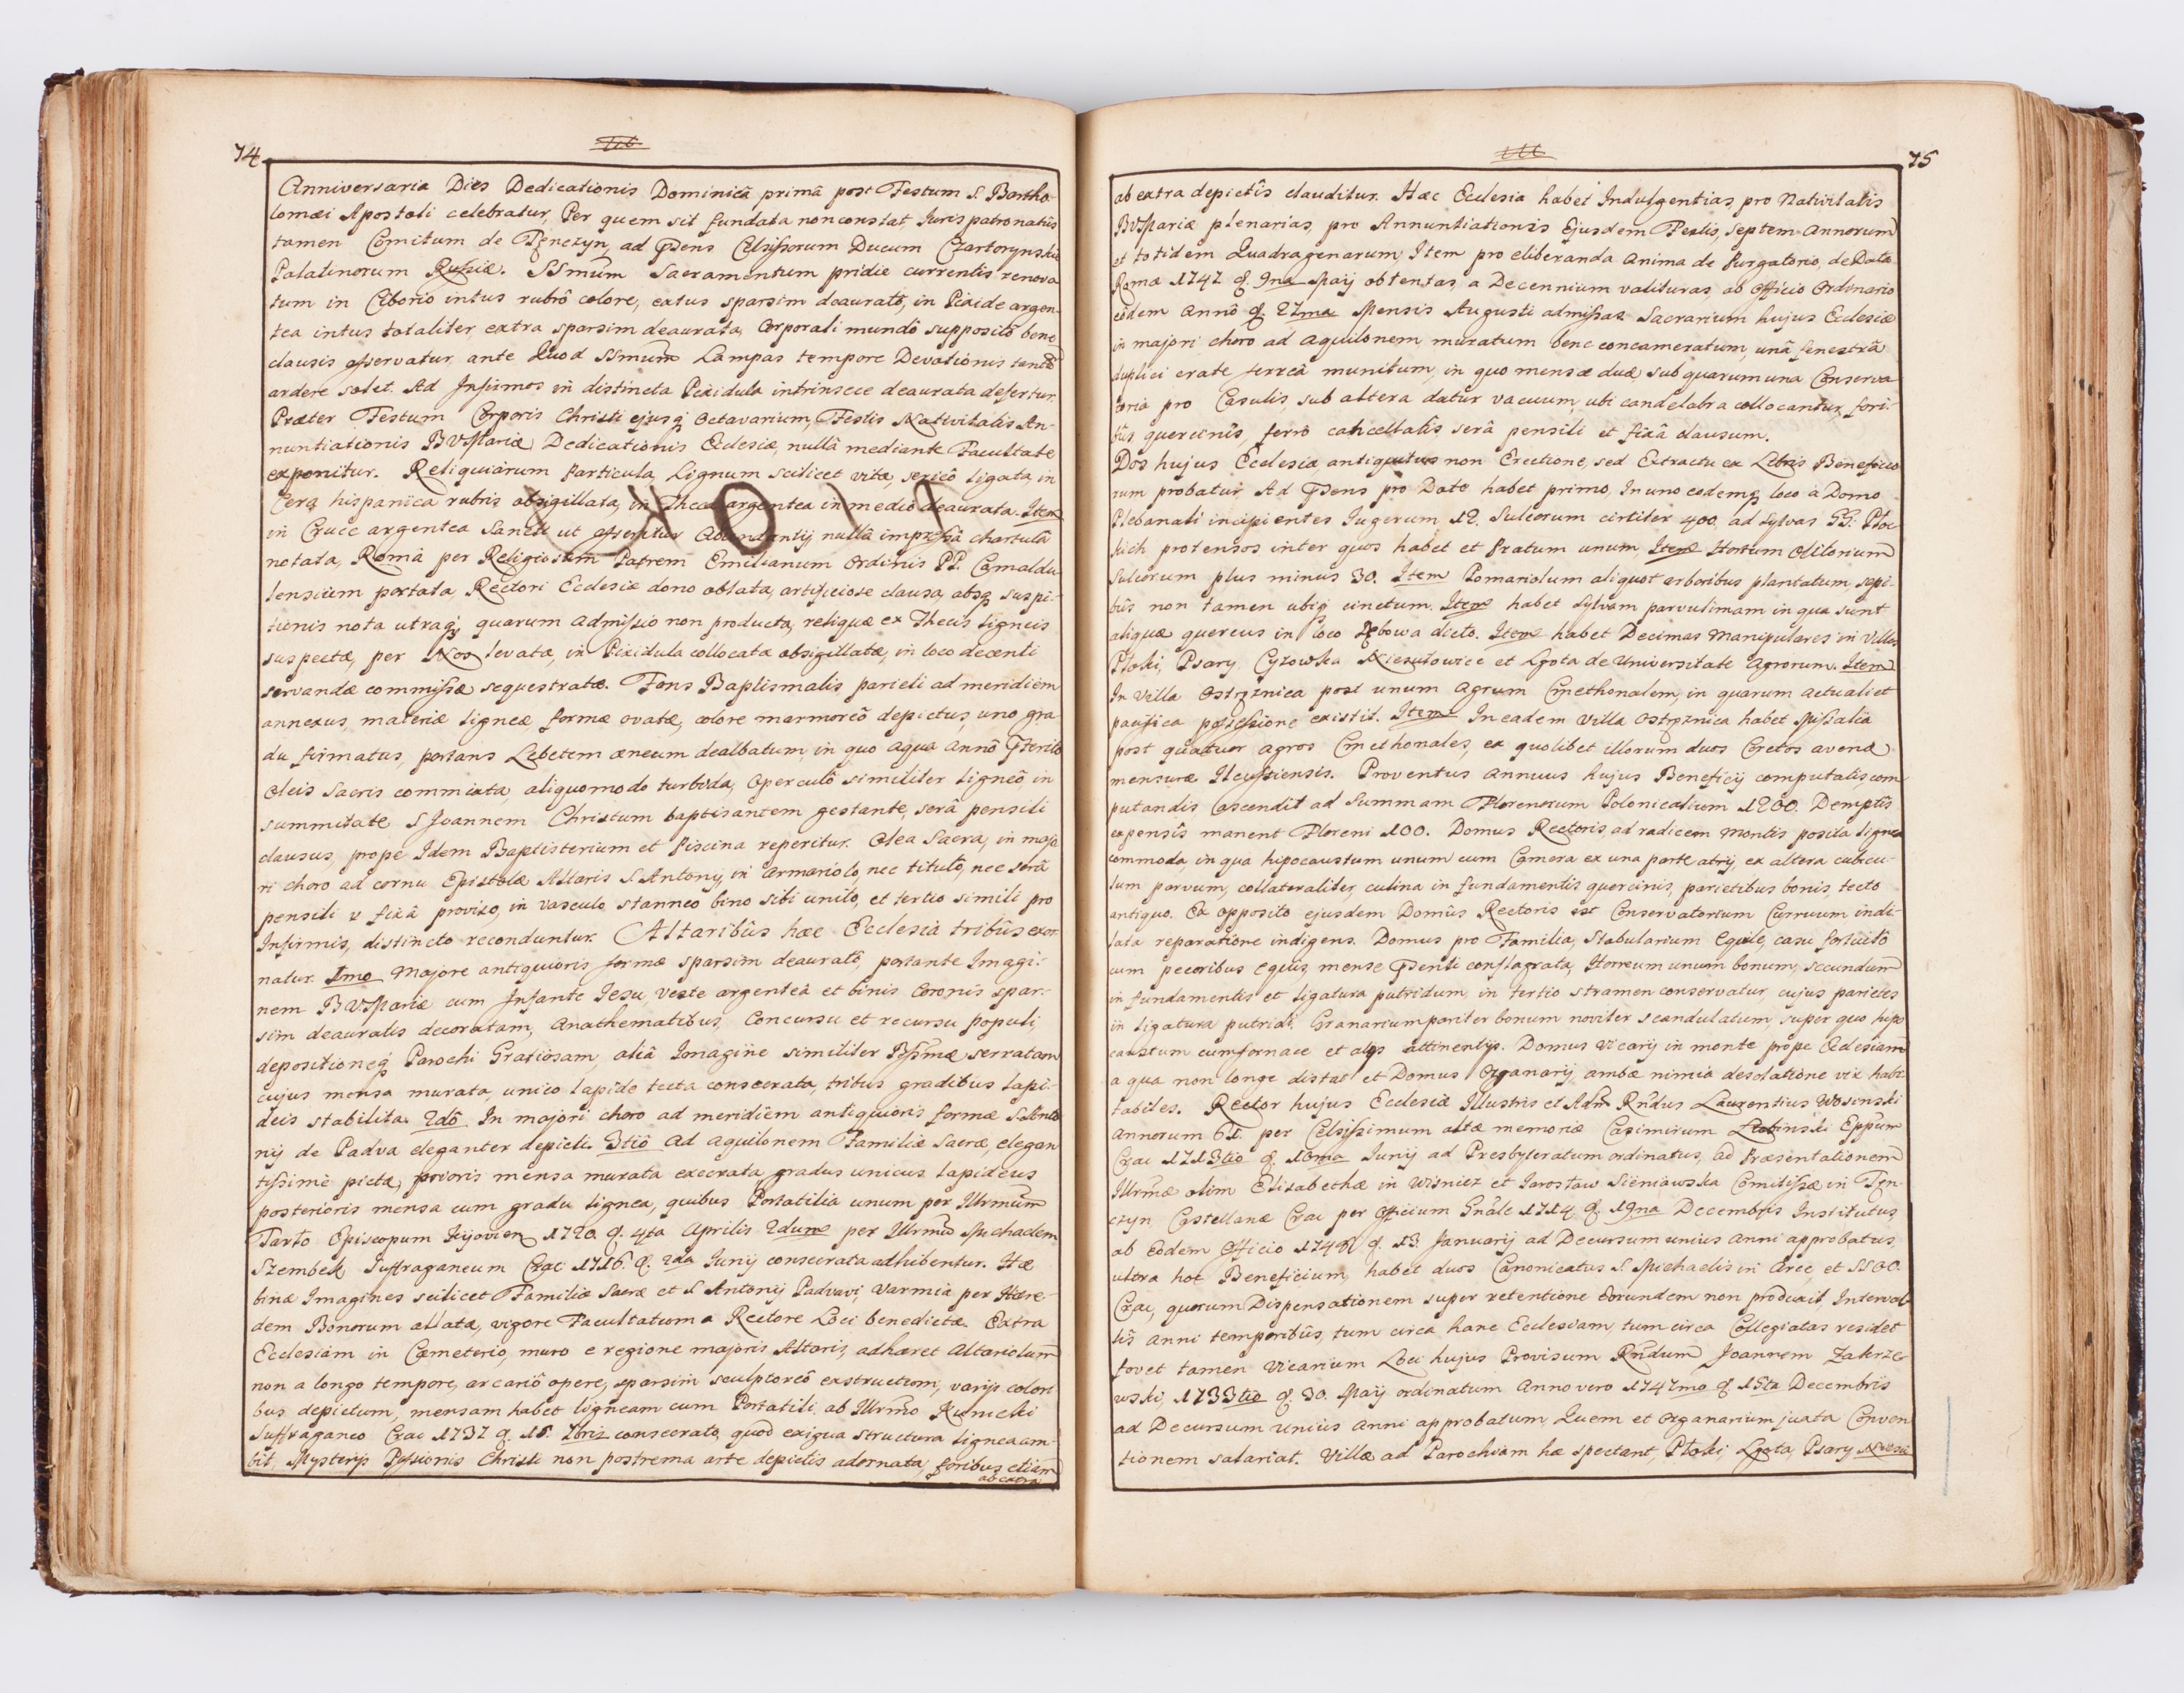 74
Anniversaria Dies Dedicationis Dominicâ primâ post Festum S. Bartho-
lomæi Apostoli celebratur, Per quem sit fundata non constat, Iuris patronatûs
tamen Comitum de Tęnczyn, ad Pñens Celsissorum Ducum Czartoryński
Palatinorum Russiæ. SSmum Sacramentum pridie currentis renova
tum in Ciborio intus rubrô colore, extus sparsim deauratô, in Pixide argen-
tea intus totaliter, extra sparsim deaurata, Corporali mundô suppositô bene
clausis asservatur, ante Quod SSmum Lampas tempore Devotionis tantû
ardere solet. Ad Infirmos in distincta Pixidula intrinsece deaurata defertur.
Præter Festum Corporis Christi ejusq; Octavarium, Festis Nativitatis An-
nuntiationis BVMariæ Dedicationis Ecclesiæ, nullâ mediante Facultate
exponitur. Reliquiarum Particula, Lignum scilicet vitæ, sericô ligata, in
Cera hispanica rubris obsigillata, in Theca argentea in medio deaurata. Item
in Cruce argentea Sancti ut asseritur Abundantij nullâ impressâ chartulâ
notata, Româ per Religiosum Patrem Emilianum Ordinis PP. Camaldu
lensium portata, Rectori Ecclesiæ dono oblata, artificiose clausa, absq; suspi-
tionis nota utraq; quarum admissio non producta, reliquæ ex Thecis ligneis
suspectæ, per Nos levatæ, in Pixidula collocatæ obsigillatæ, in loco decenti
servandæ commissæ sequestratæ. Fons Baptismalis parieti ad meridiem
annexus, materiæ ligneæ, formæ ovatæ, colore marmoreô depictus, uno gra
du firmatus, portans Lebetem æneum dealbatum, in quo aqua Annô Pñteritô
Oleis Sacris commixta, aliquomodo turbida, Operculô similiter ligneô, in
summitate S Joannem Christum baptisantem gestante, serâ pensili
clausus, prope Idem Baptisterium et Piscina reperitur. Olea Sacra, in majo
ri choro ad cornu Epistolæ Altaris S Antony in armariolo, nec titulô, nec serâ
pensili v fixâ proviso, in vasculo stanneo bino sibi unito, et tertio simili pro
Infirmis, distincto reconduntur. Altaribûs hæc Ecclesia tribûs exor
natur. Imo Majore antiquioris formæ sparsim deauratô, portante Imagi-
nem BVMariæ cum Infante Iesu, veste argenteâ et binis Coronis spar-
sim deauratis decoratam, Anathematibus, Concursu et recursu populi,
depositioneq; Parochi Gratiosam, aliâ Imagine similiter Bssmæ serratam
cujus mensa murata, unico lapide tecta consecrata, tribus gradibus lapi-
deis stabilita. 2dô In majori choro ad meridiem antiquioris formæ S Anto
nij de Padva eleganter depicti. 3tiô Ad aquilonem Familiæ Sacræ, elegan
tissimè pictæ, prioris mensa murata execrata, gradus unicus lapideus
posterioris mensa cum gradu lignea, quibus Portatilia unum per Illrmum
Tarło Episcopum Kijovien 1720. d. 4ta Aprilis 2dum per Illrmum Michaelem
Szembek Suffraganeum Crac 1716. d. 2da Iunij consecrata adhibentur. Hæ
binæ Imagines scilicet Familiæ Sacræ et S Antonij Paduavi, Varmia per Hære-
dem Bonorum allatæ, vigore Facultatum a Rectore Loci benedictæ. Extra
Ecclesiam in Cœmeterio, muro e regione majoris Altaris, adhæret Altariolum
non a longo tempore, arcariô opere, sparsim sculptoreô exstructum, varijs colori
bus depictum, mensam habet ligneam cum Portatili ab Illrmo Kunicki
Suffraganeo Crac 1737 d. 18. 7bris consecrato, quod exigua structura lignea am-
bit, Mysterijs Passionis Christi non postrema arte depictis adornata, foribus etiam
ab extra
75
ab extra depictîs clauditur. Hæc Ecclesia habet Indulgentias, pro Nativitatis
BVMariæ plenarias, pro Annuntiationis Ejusdem Festis, septem Annorum
et totidem Quadragenarum, Item pro eliberanda Anima de Purgatorio, de Dato
Romæ 1747 d. 9na Maij obtentas, a Decennium valituras, ab Officio Ordinario
eôdem Annô d. 27ma Mensis Augusti admissas. Sacrarium hujus Ecclesiæ
in majori choro ad Aquilonem muratum bene concameratum, unâ fenestrâ
duplici crate ferreâ munitum, in quo mensæ duæ, sub quarum una Conserva
toria pro Casulis, sub altera datur vacuum, ubi candelabra collocantur, fori-
bûs quercinîs, ferrô cancellatîs, serâ pensili et fixâ clausum.
Dos hujus Ecclesiæ antiquitus non Erectione, sed Extractu ex Libris Beneficio
rum probatur. Ad Pñens pro Dote habet primo, In uno eodemq; loco a Domo
Plebanali incipientes Iugerum 12. Sulcorum circiter 400. ad Sylvas GG: Płoc-
kich protensos inter quos habet et Pratum unum, Item Hortum Olitorium
Sulcorum plus minus 30. Item Pomariolum aliquot arboribus plantatum, sepi-
bûs non tamen ubiq; cinctum. Item habet Sylvam parvulimam in qua sunt
aliquæ quercus in loco Dębowa dicto. Item habet Decimas Manipulares in Villis
Płoki, Psary, Czyżowka Niesułowice et Lgota de Universitate Agrorum. Item
In Villa Ostrężnica post unum Agrum Cmethonalem, in quarum actuali et
pacifica possessione existit. Item In eadem Villa Ostrężnica habet Missalia
post quatuor Agros Cmethonales, ex quolibet illorum duos Coretos avenæ
mensuræ Ilcussiensis. Proventus Annuus hujus Beneficij computatis com
putandis ascendit ad Summam Florenorum Polonicalium 1200. Demptîs
expensîs manent Floreni 100. Domus Rectoris, ad radicem Montis posita lignea
commoda, in qua hipocaustum unum cum Camera ex una parte atrij, ex altera cubicu-
lum parvum, collateraliter, culina in fundamentis quercinis, parietibus bonis, tecto
antiquo. Ex opposito ejusdem Domûs Rectoris est Conservatorium Curruum indi-
lata reparatione indigens. Domus pro Familia, Stabularium Equile, casu fortuitô
cum pecoribus equis, mense Pñenti conflagrata, Horreum unum bonum, secundum
in fundamentis et ligatura putridum, in tertio stramen conservatur, cujus parietes
in ligatura putridi, Granarium pariter bonum noviter scandulatum, super quo hipo
caustum cum fornace et alijs attinentijs. Domus Vicarij in monte prope Ecclesiam
a qua non longe distat et Domus Organarij, ambæ nimia desolatione vix habi
tabiles. Rector hujus Ecclesiæ Illustris et Adm Rndus Laurentius Wosinski
Annorum 61. per Celsissimum altæ memoriæ Casimirum Łubinski Eppum
Crac 1713tio d. 10ma Iunij ad Presbyteratum ordinatus, ad Præsentationem
Illrmæ olim Elisabethæ in Wisnicz et Iarosław Sieniawska Comitissæ in Tęn-
czyn Castellanæ Crac per Officium Gnãle 1714 d. 19na Decembris Institutus,
ab Eodem Officio d. 13. Januarij ad Decursum unius Anni approbatus,
ultra hoc Beneficium, habet duos Canonicatus S Michaelis in Arce, et SSOO.
Crac, quorum Dispensationem super retentione Eorundem non produxit, Interval-
lîs Anni temporibûs, tum circa hanc Ecclesiam, tum circa Collegiatas residet
fovet tamen Vicarium Loci hujus Provisum Rndum Joannem Zakrze-
wski, 1733tio d. 30. Maij ordinatum Anno vero 1747mo d. 15ta Decembris
ad Decursum Unius Anni approbatum, Quem et Organarium juxta Conven
tionem salariat. Villæ ad Parochiam hæ spectant, Płoki, Lgota, Psary